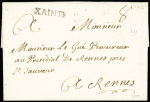 XAINTES
A Monsieur
Monsieur Le Gué Procureur
au Presidial de Rennes pres
St Sauveur
A Rennes